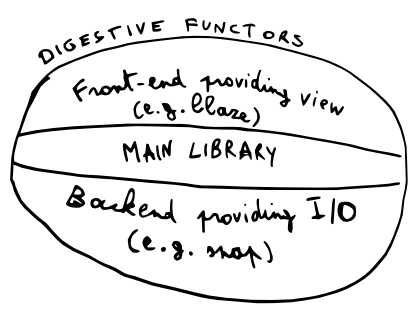 DIGESTIVE FUNCTORS
Front-end providing view
(e.g. blaze)
MAIN LIBRARY
Backend providing I/O
(e.g. snap)